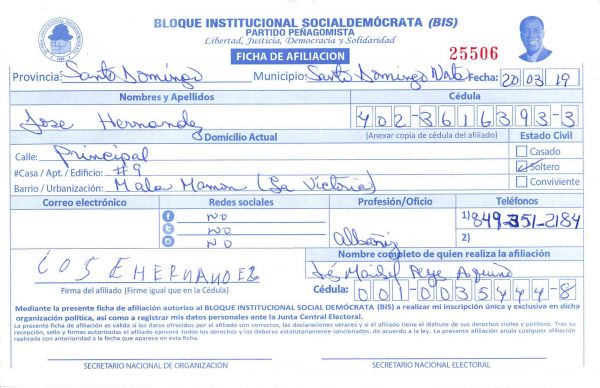 BLOQUE INSTITUCIONAL SOCIALDEMÓCRATA (BIS)
PARTIDO PEÑAGOMISTA
Libertad, Justicia, Democracia y Solidaridad
FICHA DE AFILIACION
25506
Provincia: Santo Domingo Municipio: Santo Domingo Norte Fecha: 20 03 19
Nombres y Apellidos Cédula
Jose Hernandez 402-3616393-3
Domicilio Actual (Anexar copia de cédula del afiliado) Estado Civil
Calle: Principal Casado
#Casa / Apt. / Edificio: #9 Soltero
Barrio / Urbanización: Mala Mamon (La Victoria) Conviviente
Correo electrónico Redes sociales Profesión/Oficio Teléfonos
NO 1) 849-351-2184
NO Albañil 2)
NO
Nombre completo de quien realiza la afiliación
JOSE HERNANDEZ
Firma del afiliado (Firme igual que en la Cédula) Cédula: 001-0035444-8
Mediante la presente ficha de afiliación autorizo al BLOQUE INSTITUCIONAL SOCIAL DEMÓCRATA (BIS) a realizar mi inscripción única y exclusiva en dicha
organización política, así como a registrar mis datos personales ante la Junta Central Electoral.
La presente ficha de afiliación es válida si los datos ofrecidos por el afiliado son correctos, las declaraciones veraces y si el afiliado tiene el disfrute de sus derechos civiles y políticos. Tras su
recepción, sello y firmas autorizadas el afiliado ejercerá todos los derechos y los deberes estatutariamente sancionados, de acuerdo a la ley. La presente afiliación anula cualquier afiliación
realizada con anterioridad a la fecha que aparece en esta ficha.
SECRETARIO NACIONAL DE ORGANIZACIÓN SECRETARIO NACIONAL ELECTORAL